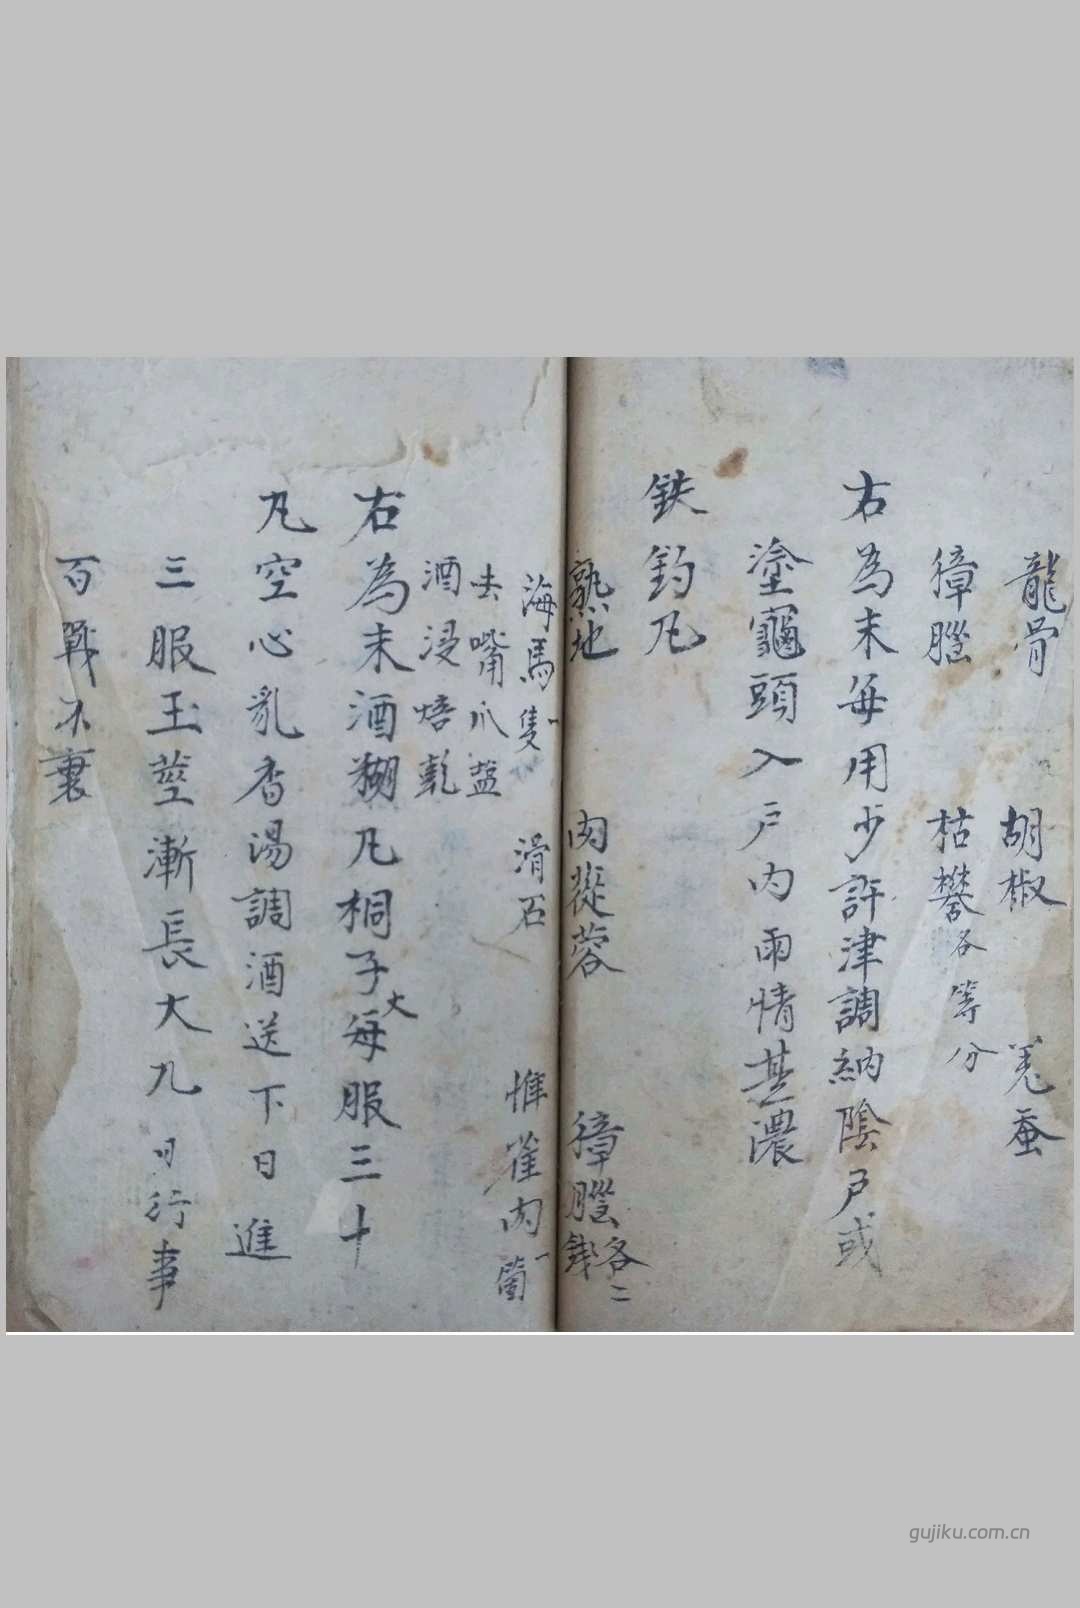 龍骨 胡椒 蚕
獐腦 枯礬各等分
右為末每用少許津調納陰戶或
塗龜頭入戶内兩情甚濃
鉄釣凡
熟地 肉蓯蓉 獐腦各二錢
海馬一隻 滑石 惟雀肉一箇
去嘴爪盐
酒浸焙乾
右為末酒糊凡桐子大每服三十
凡空心乳香湯調酒送下日進
三服玉莖漸長大九日行事
百戰不衰
gujiku.com.cn